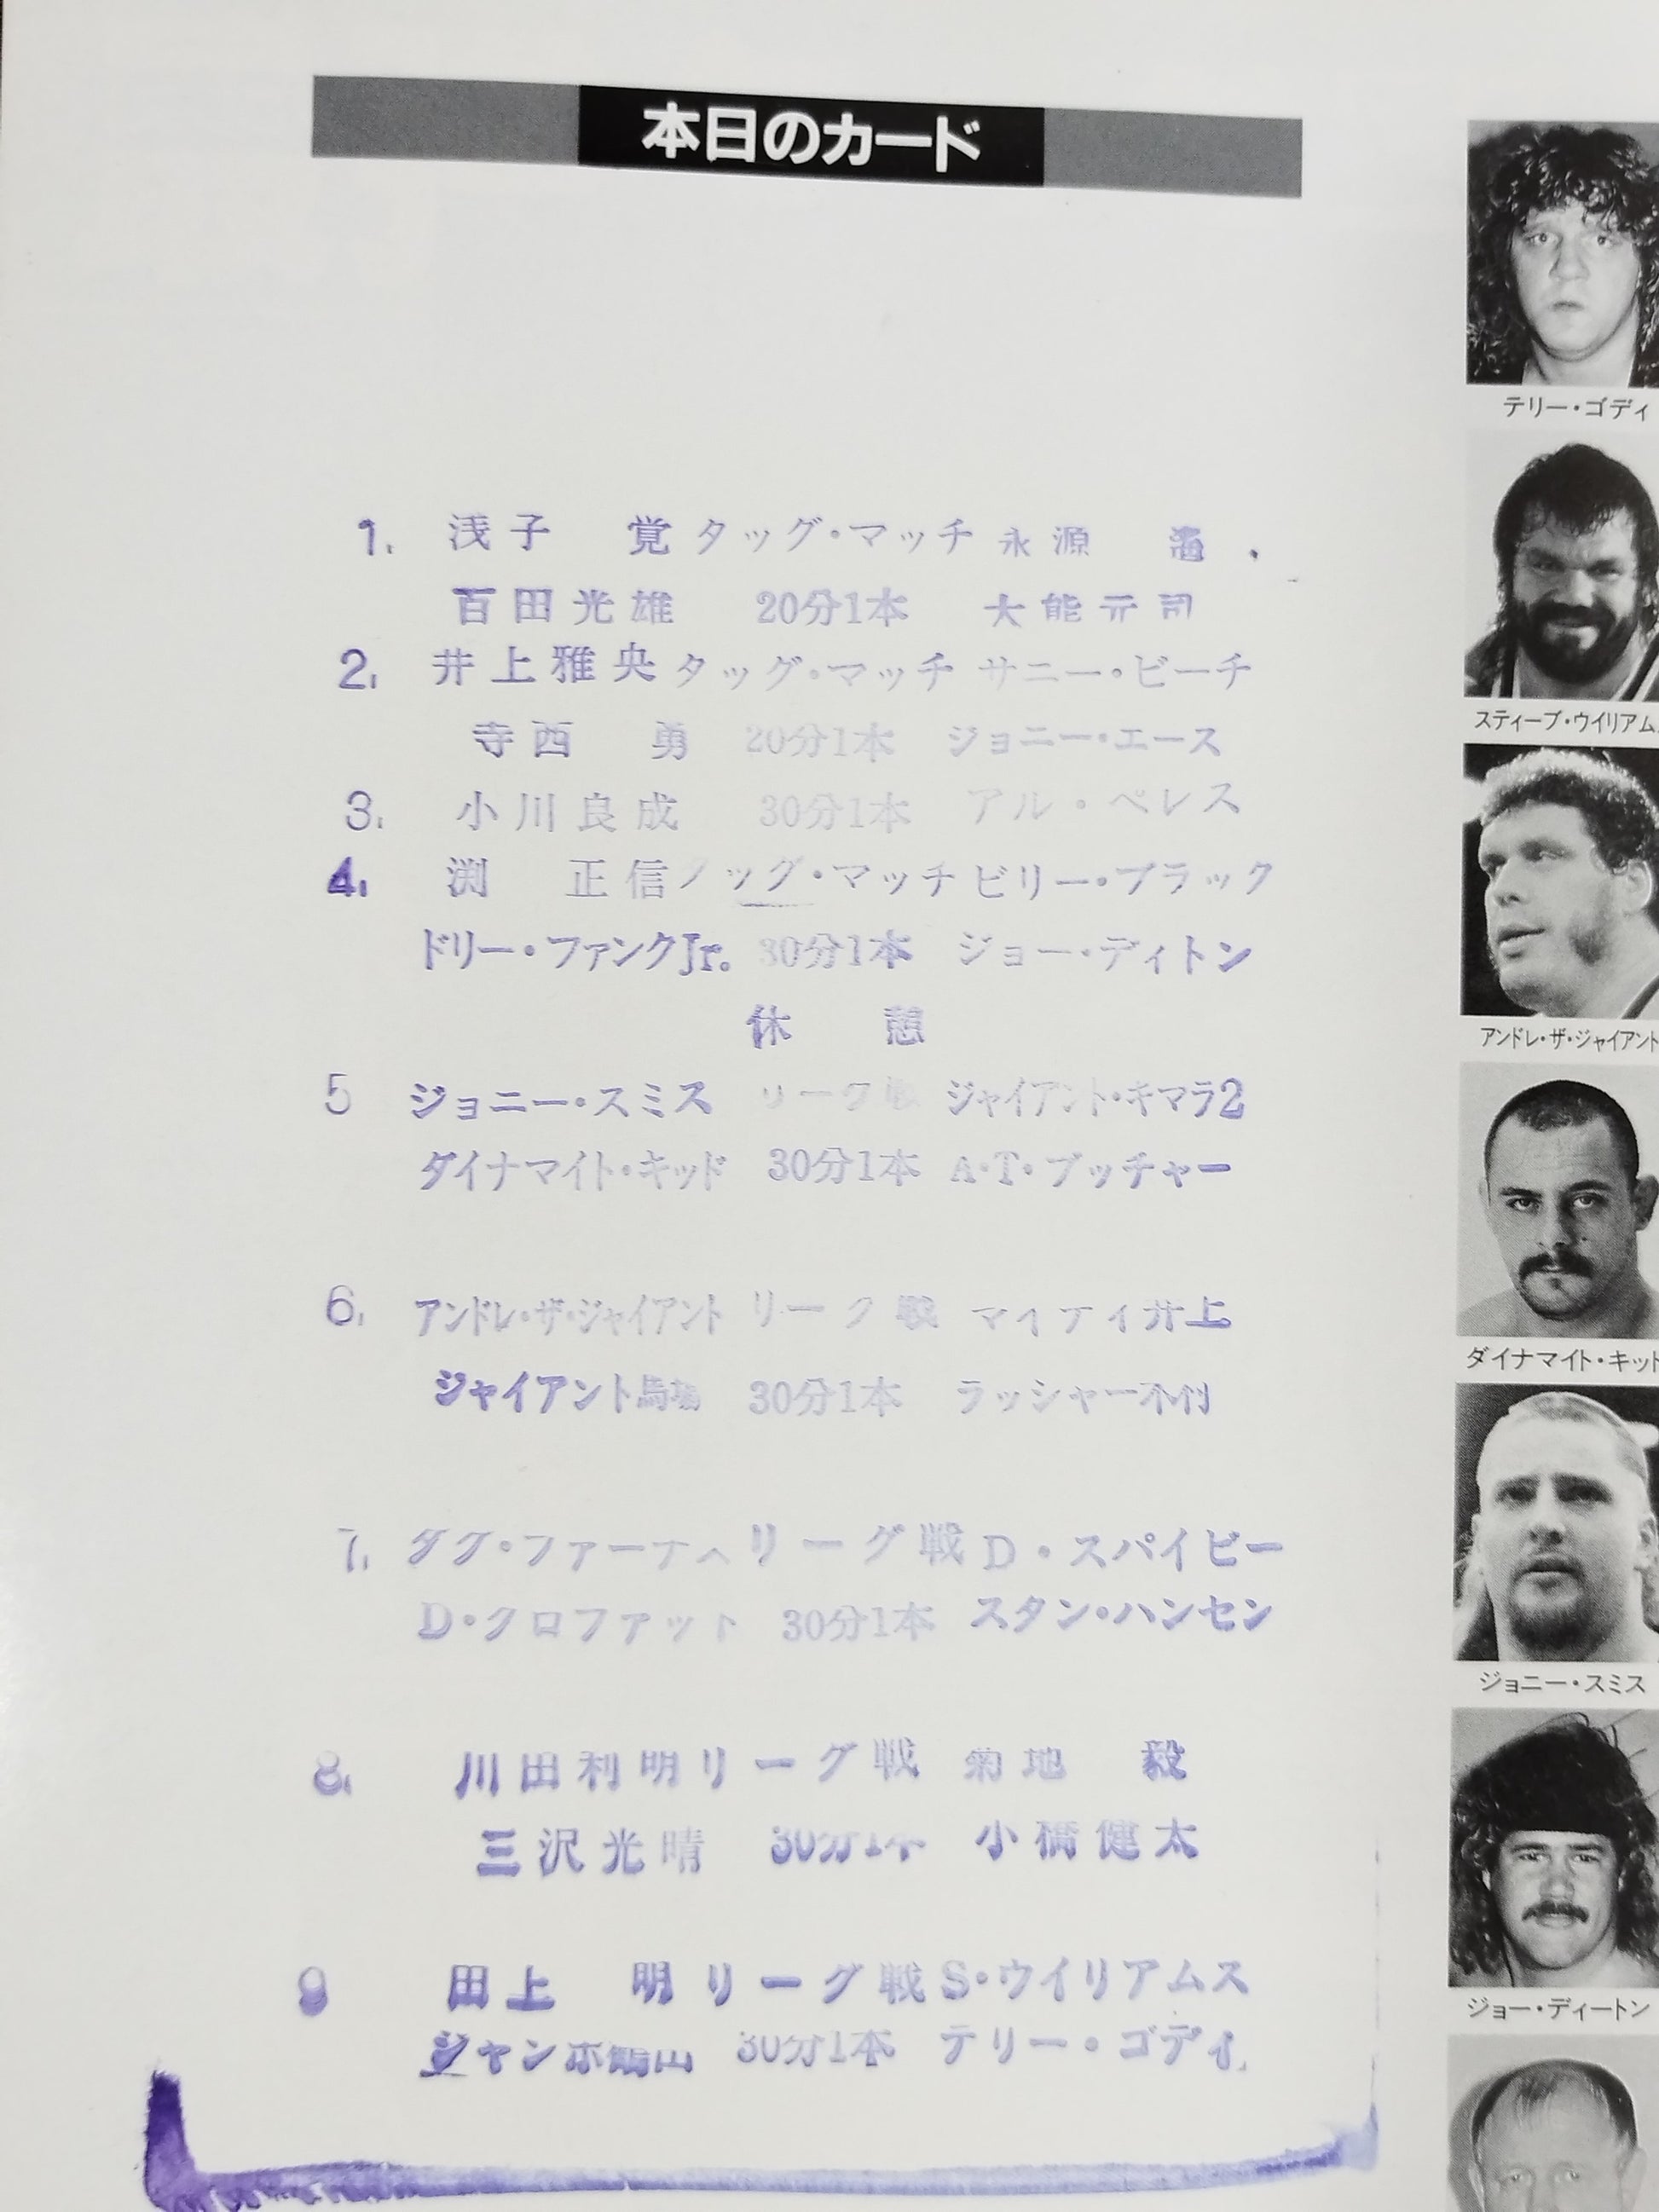 本日のカード
1. 浅子 覚 タッグ・マッチ 永源 遙
百田光雄 20分1本 大熊元司
2. 井上雅央 タッグ・マッチ サニー・ビーチ
寺西 勇 20分1本 ジョニー・エース
3. 小川良成 30分1本 アル・ペレス
4. 渕 正信 タッグ・マッチ ビリー・ブラック
ドリー・ファンクJr. 30分1本 ジョー・ディトン
休 憩
5 ジョニー・スミス リーグ戦 ジャイアント・キマラ2
ダイナマイト・キッド 30分1本 A・T・ブッチャー
6. アンドレ・ザ・ジャイアント リーグ戦 マイティ井上
ジャイアント馬場 30分1本 ラッシャー木村
7. ダグ・ファーナス リーグ戦 D・スパイビー
D・クロファット 30分1本 スタン・ハンセン
8. 川田利明 リーグ戦 菊地 毅
三沢光晴 30分1本 小橋健太
9 田上 明 リーグ戦 S・ウイリアムス
ジャンボ鶴田 30分1本 テリー・ゴディ
テリー・ゴディ
スティーブ・ウイリアム
アンドレ・ザ・ジャイアント
ダイナマイト・キッド
ジョニー・スミス
ジョー・ディートン